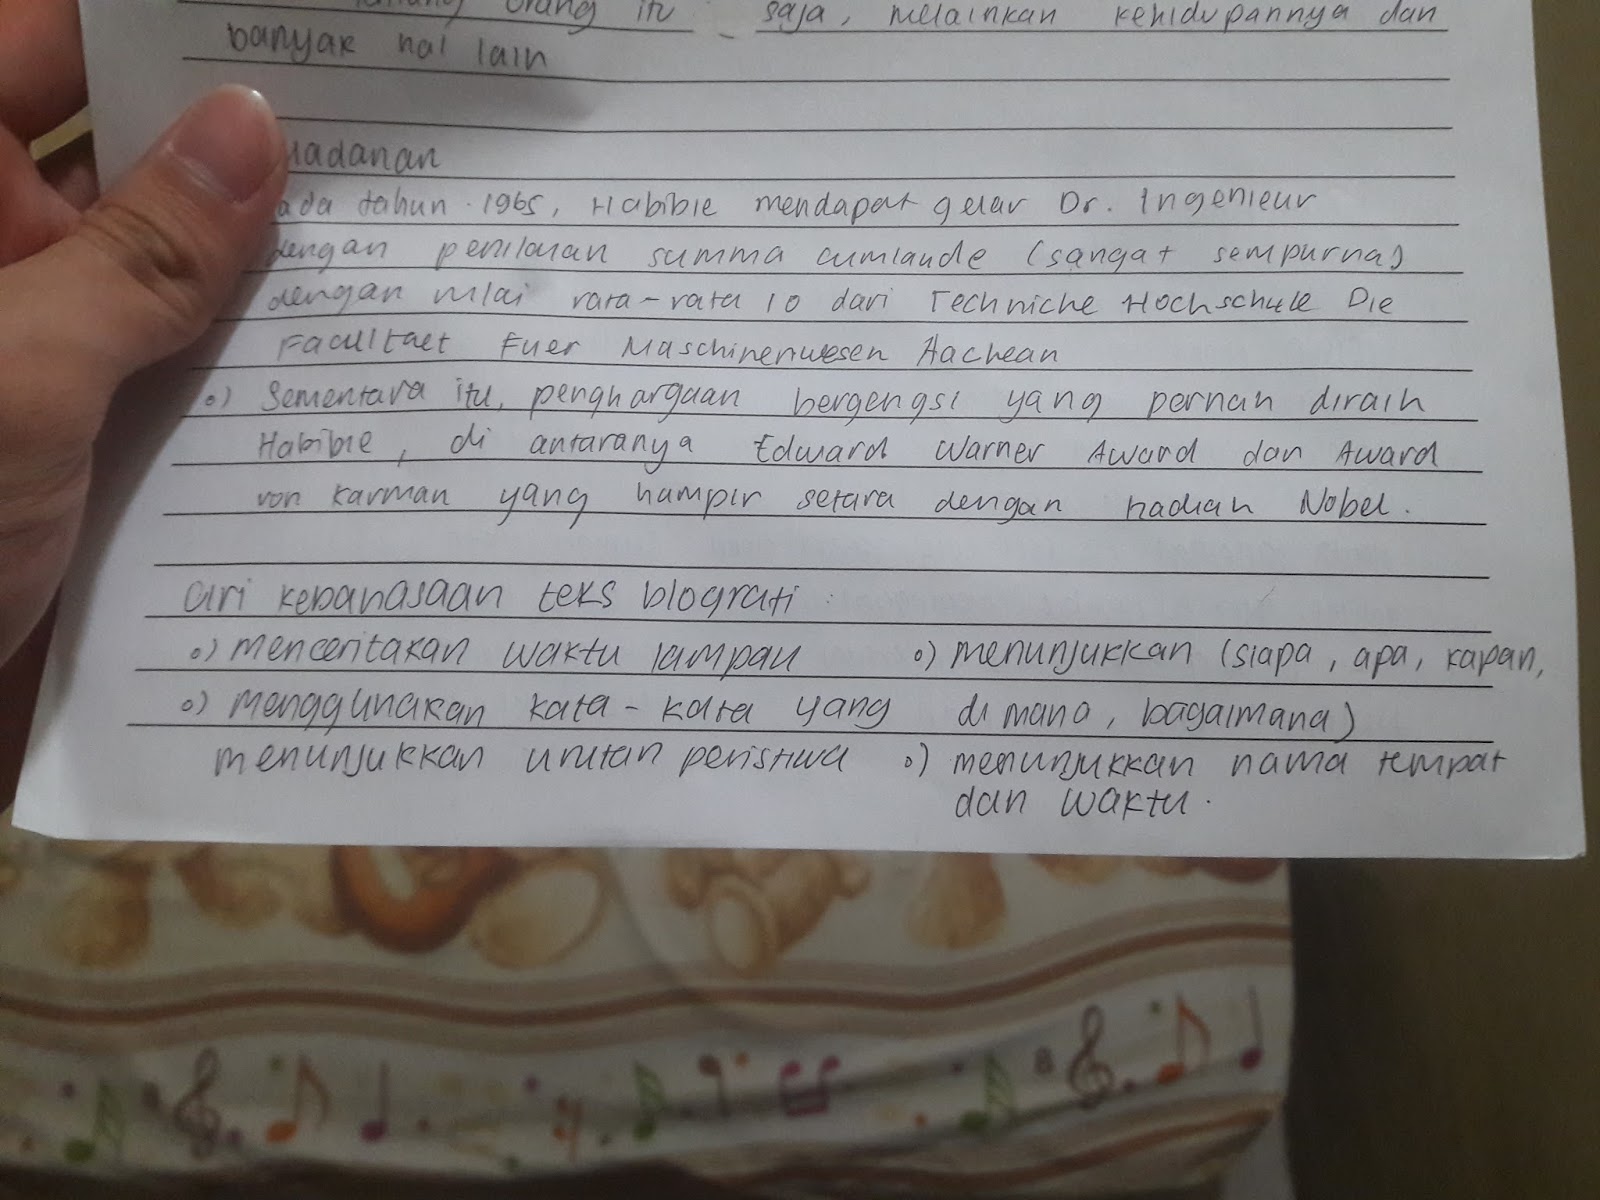 orang itu saja, melainkan kehidupannya dan
banyak hal lain
ada tahun 1965, Habibie mendapat gelar Dr. Ingenieur
dengan penilaian summa cumlaude (sangat sempurna)
dengan nilai rata-rata 10 dari Techniche Hochschule Die
Facultaet Fuer Maschinenwesen Aachean
o) Sementara itu, penghargaan bergengsi yang pernah diraih
Habibie, di antaranya Edward Warner Award dan Award
von Karman yang hampir setara dengan hadiah Nobel.
Ciri kebahasaan teks biografi :
o) menceritakan waktu lampau
o) menggunakan kata-kata yang
menunjukkan urutan peristiwa
o) menunjukkan (siapa, apa, kapan,
di mana, bagaimana)
o) menunjukkan nama tempat
dan waktu.